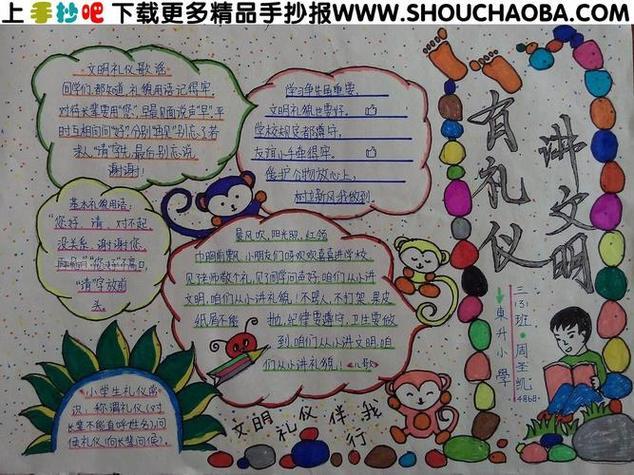 上手抄吧 下载更多精品手抄报WWW.SHOUCHAOBA.COM
文明礼仪歌谣
同学们,都知道,礼貌用语记得牢,
对待长辈要用"您",早晨见面说声"早",平
时互相问问"好",分别"再见"别忘了若
求人"请"先出,最后别忘说
谢谢!
学习争先画重要,
文明礼貌也要好。
学校规定都遵守,
友谊小手牵得牢。
爱护公物放心上,
树立新风我做到。
基本礼貌用语:
"您好、请、对不起
没关系、谢谢您、
"请"字放前
头。
晨风吹,阳光照,红领
巾胸前飘,小朋友们欢欢喜喜进学校
见了老师敬个礼,见了同学问声好,咱们从小讲
文明,咱们从小讲礼貌,!不骂人,不打架,果皮
纸屑不能抛,纪律要遵守,卫生要做
到,咱们从小讲文明,咱
们从小讲礼貌,!
小学生礼仪常
识,称谓礼仪(对
长辈不能直呼姓名),问
候礼仪(向长辈问候)。
文明礼仪伴我行
有礼仪
讲文明
三(3)班 周圣凯
東升小學